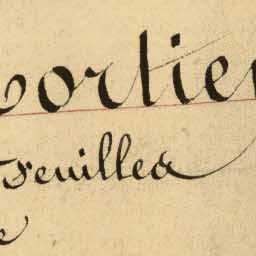 ortie
Feuilles
e